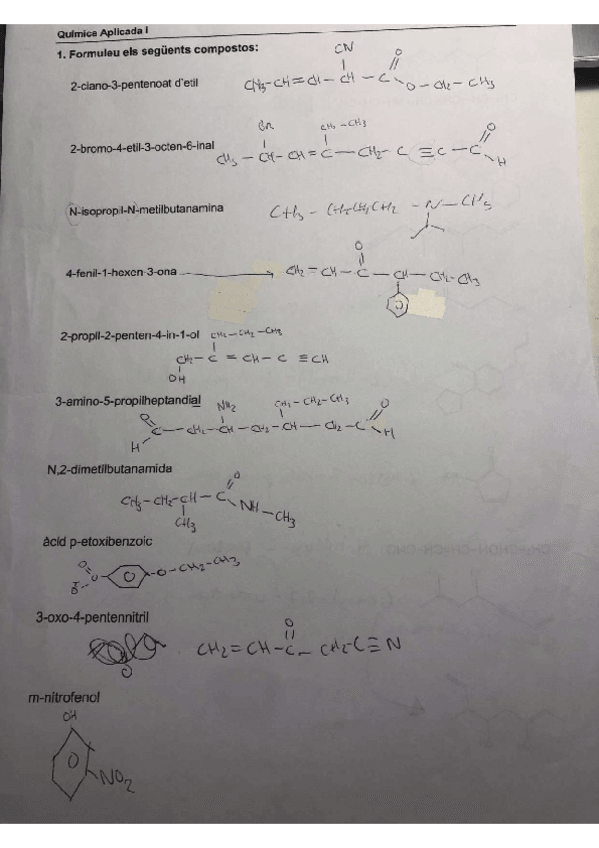 Química Aplicada I
1. Formuleu els següents compostos:
2-ciano-3-pentenoat d'etil
CN
CH3-CH=CH-CH-C
O
O-CH2-CH3
2-bromo-4-etil-3-octen-6-inal
Br
CH2-CH3
CH3-CH-CH=C-CH2-C≡C-C
O
H
N-isopropil-N-metilbutanamina
CH3-CH2CH2CH2-N-CH3
4-fenil-1-hexen-3-ona
O
CH2=CH-C-CH-CH2-CH3
2-propil-2-penten-4-in-1-ol
CH2-CH2-CH3
CH2-C=CH-C≡CH
OH
3-amino-5-propilheptandial
NH2
CH2-CH2-CH3
O
O
C-CH2-CH-CH2-CH-CH2-C
H
H
N,2-dimetilbutanamida
O
CH3-CH2-CH-C
NH-CH3
CH3
àcid p-etoxibenzoic
O-CH2-CH3
3-oxo-4-pentennitril
O
CH2=CH-C-CH2C≡N
m-nitrofenol
OH
NO2